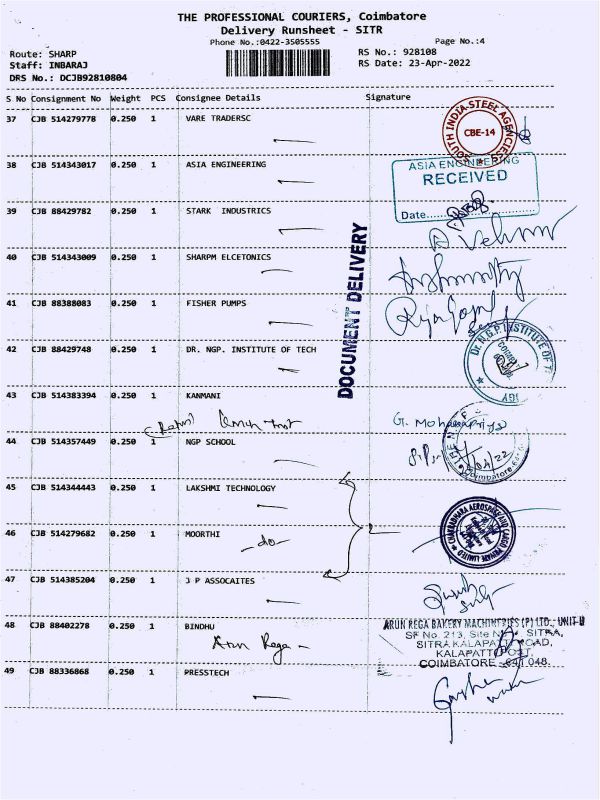 THE PROFESSIONAL COURIERS, Coimbatore
Delivery Runsheet - SITR
Phone No.:0422-3505555
Page No.:4
Route: SHARP
RS No.: 928108
Staff: INBARAJ
RS Date: 23-Apr-2022
DRS No.: DCJB92810804
S No Consignment No Weight PCS Consignee Details Signature
37 CJB 514279778 0.250 1 VARE TRADERSC
SOUTH INDIA STEEL AGENCIES
CBE-14
38 CJB 514343017 0.250 1 ASIA ENGINEERING
ASIA ENGINEERING
RECEIVED
Date
39 CJB 88429782 0.250 1 STARK INDUSTRICS
40 CJB 514343009 0.250 1 SHARPM ELCETONICS
DOCUMENT DELIVERY
41 CJB 88388083 0.250 1 FISHER PUMPS
42 CJB 88429748 0.250 1 DR. NGP. INSTITUTE OF TECH
Dr. N.G.P. INSTITUTE OF
43 CJB 514383394 0.250 1 KANMANI
44 CJB 514357449 0.250 1 NGP SCHOOL
45 CJB 514344443 0.250 1 LAKSHMI TECHNOLOGY
46 CJB 514279682 0.250 1 MOORTHI
-do-
47 CJB 514385204 0.250 1 J P ASSOCAITES
48 CJB 88402278 0.250 1 BINDHU
Arun Rega
ARUN REGA BAKERY MACHINERIES (P) LTD., UNIT-II
SF No. 213, Site No. SITRA,
SITRA KALAPATTI ROAD,
KALAPATTI POST,
COIMBATORE - 641 048.
49 CJB 88336868 0.250 1 PRESSTECH